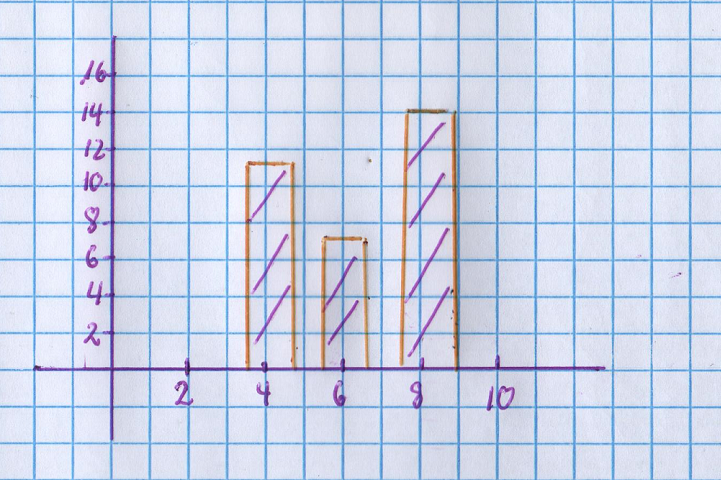 16
14
12
10
8
6
4
2
2 4 6 8 10